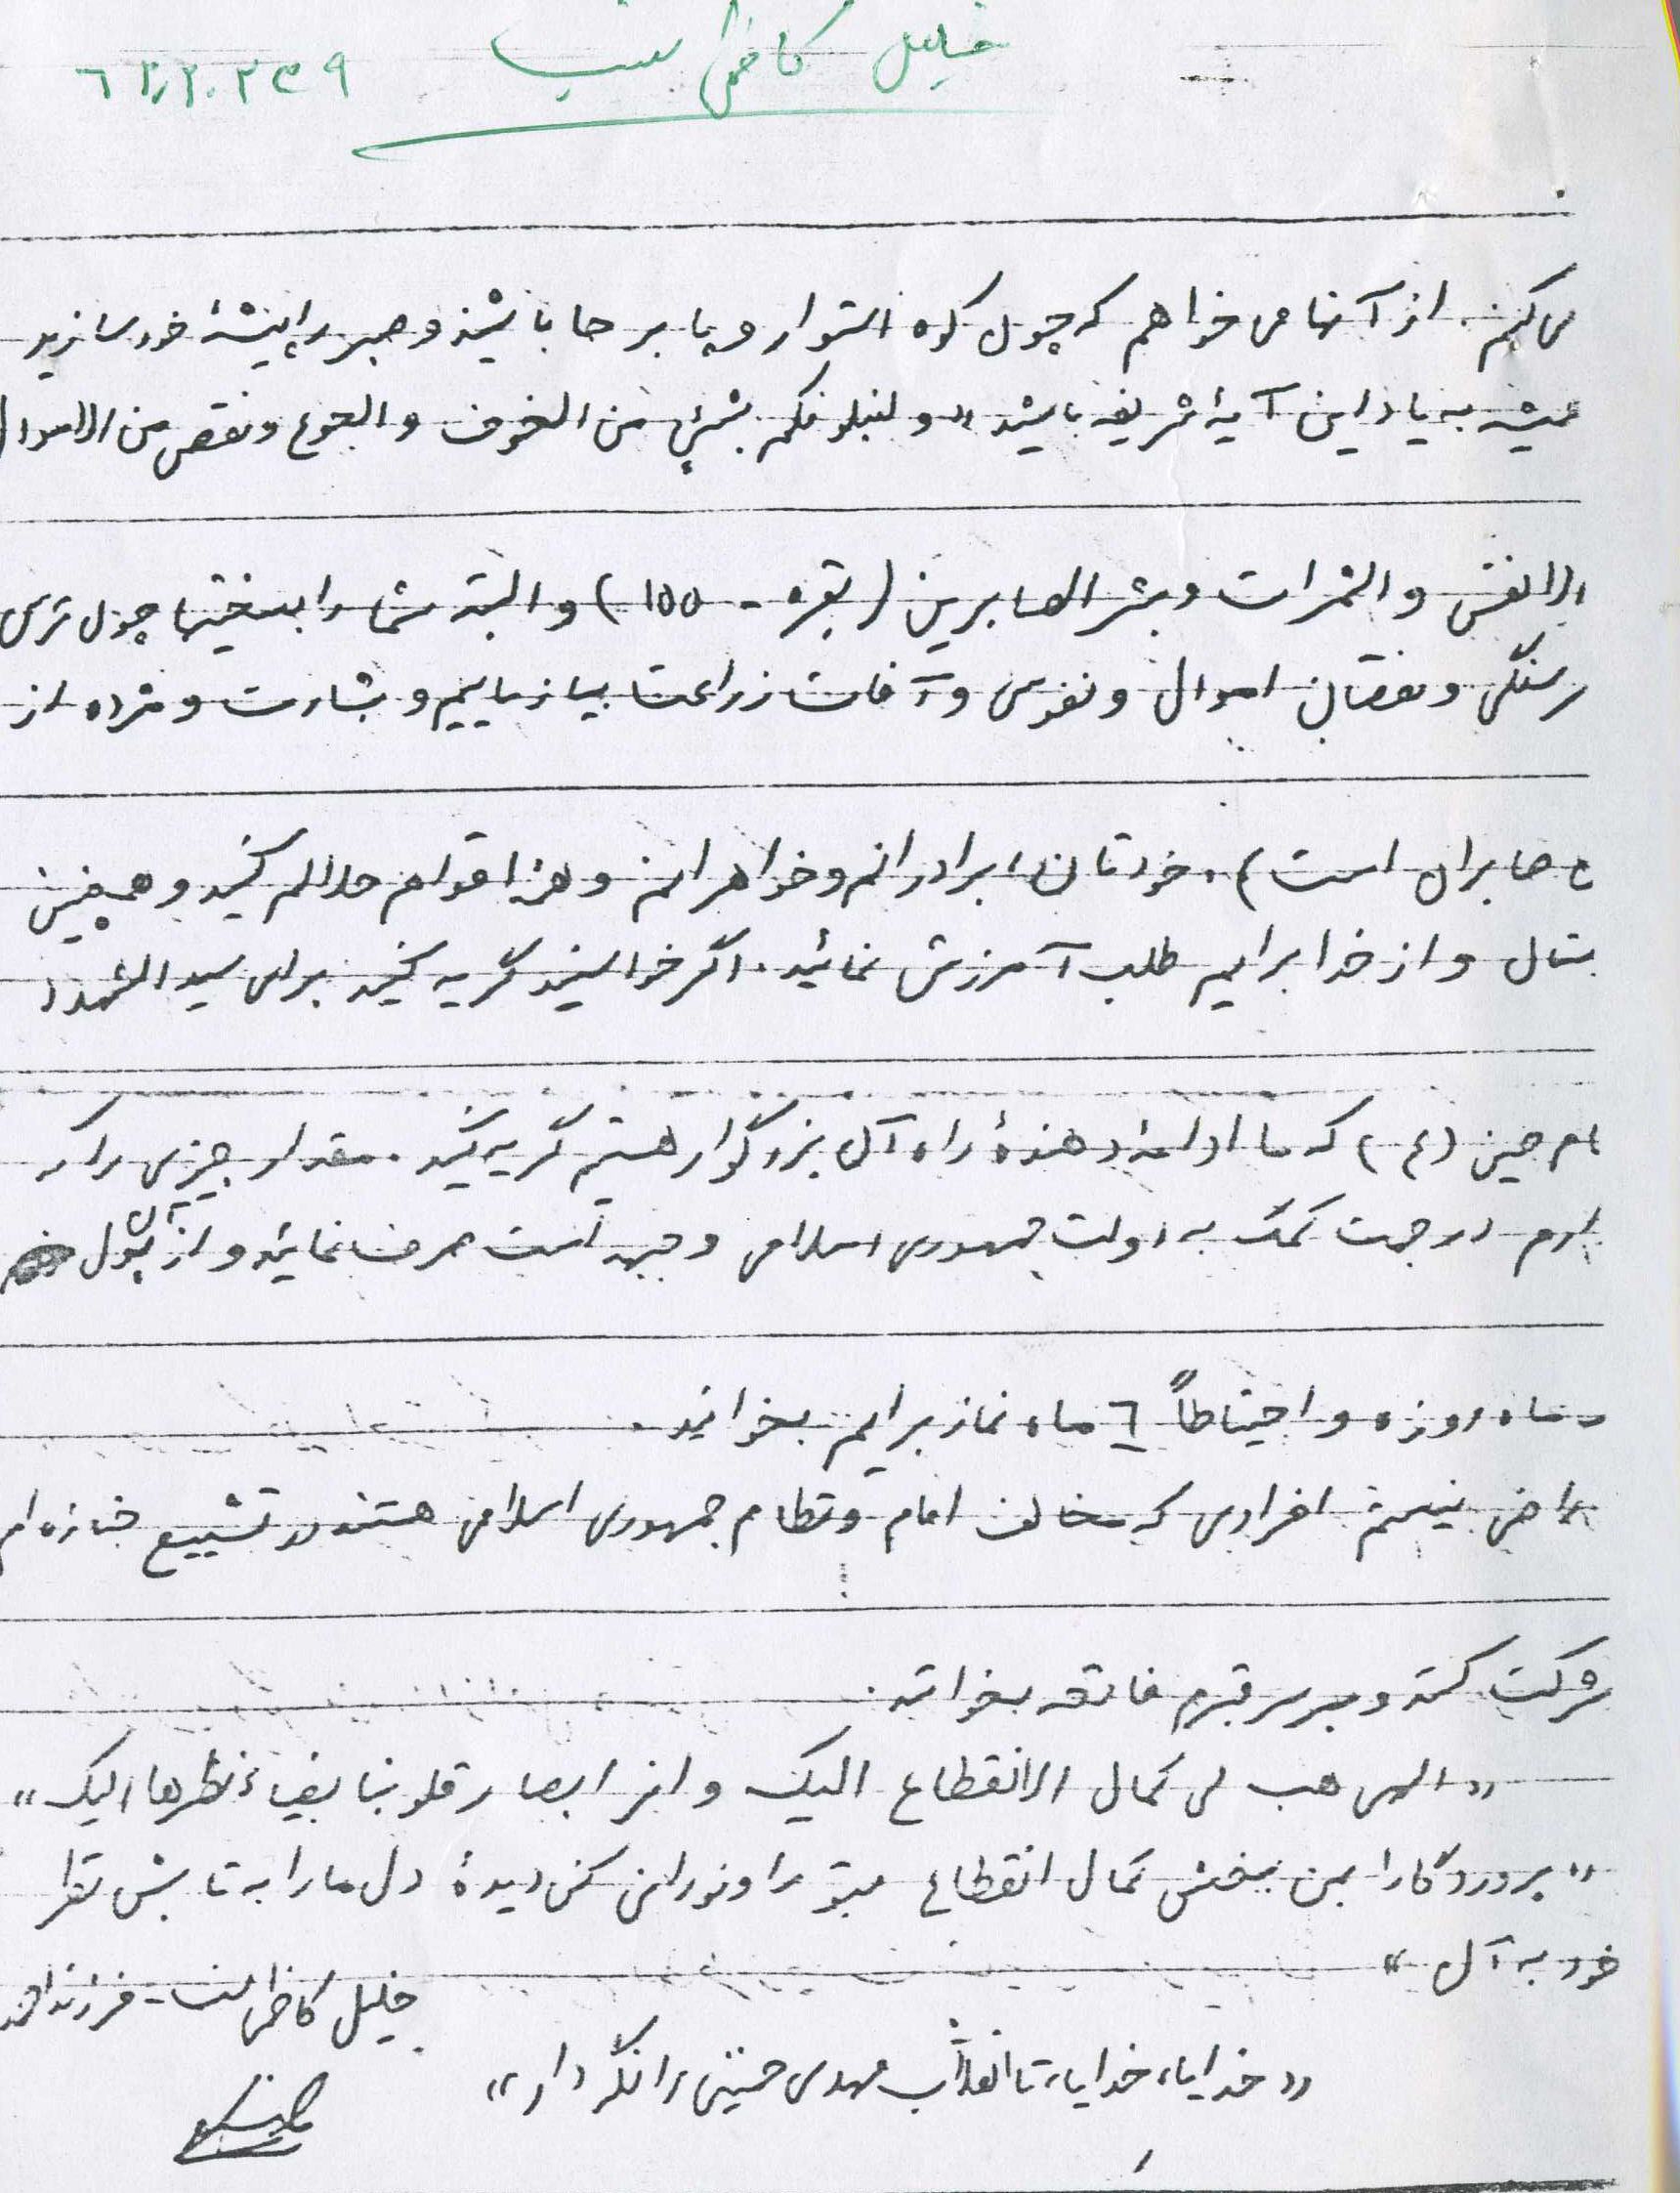 خلیل کاظمی نسب
می کنم. از آنها می خواهم که چون کوه استوار و پا بر جا باشید و صبر را پیشهٔ خود سازید
همیشه به یاد این آیهٔ شریفه باشید «و لنبلونکم بشیئ من الخوف و الجوع و نقص من الاموال
الانفس و الثمرات و بشر الصابرین (بقره - ۱۵۵) و البته شما را بسختیها چون ترس
رسنگی و نقصان اموال و نفوس و آفات زراعت بیازماییم و بشارت و مژده از
صابران است). خودتان، برادرانم و خواهرانم و همه اقوام حلالم کنید و همچنین
ستان و از خدا برایم طلب آمرزش نمائید. اگر خواستید گریه کنید برای سید الشهدا
مام حسین (ع) که ما ادامه دهندهٔ راه آن بزرگوار هستیم گریه کنید. مقدار چیزی را که
دارم در جهت کمک به دولت جمهوری اسلامی و جبهه است صرف نمائید و از آن پول
ماه روزه و احتیاطاً ٦ ماه نماز برایم بخوانید.
راضی نیستم افرادی که مخالف امام و نظام جمهوری اسلامی هستند در تشییع جنازه ام
شرکت کنند و بر سر قبرم فاتحه بخوانند.
«الهی هب لی کمال الانقطاع الیک و انر ابصار قلوبنا بضیاء نظرها الیک»
«پروردگارا بمن ببخش کمال انقطاع بتو را و نورانی کن دیدهٔ دل ما را به تابش نظر
خود به آن»
خلیل کاظمی نسب - فرزند احمد
«خدایا، خدایا، تا انقلاب مهدی خمینی را نگه دار»